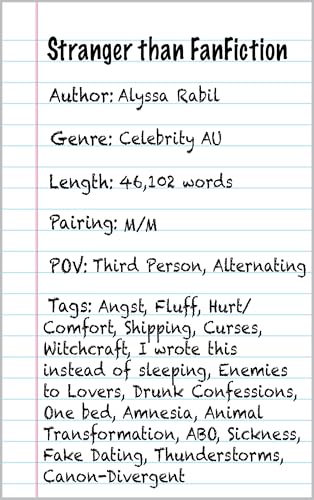 Stranger than FanFiction
Author: Alyssa Rabil
Genre: Celebrity AU
Length: 46,102 words
Pairing: M/M
POV: Third Person, Alternating
Tags: Angst, Fluff, Hurt/
Comfort, Shipping, Curses,
Witchcraft, I wrote this
instead of sleeping, Enemies
to Lovers, Drunk Confessions,
One bed, Amnesia, Animal
Transformation, ABO, Sickness,
Fake Dating, Thunderstorms,
Canon-Divergent